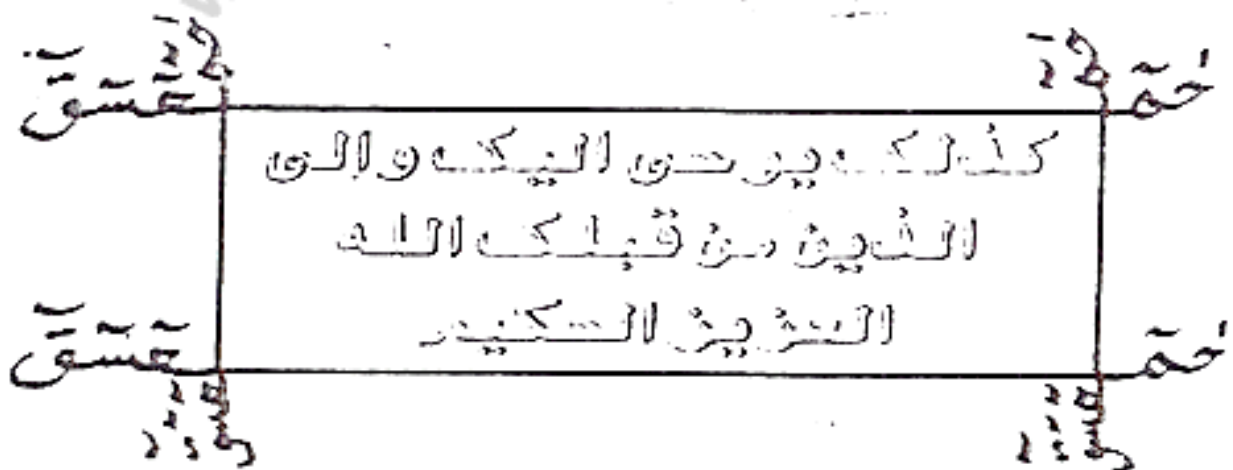 حٰمٓ
عٓسٓقٓ
كذلك يوحى اليك والى
الذين من قبلك الله
العزيز الحكيم
حٰمٓ
عٓسٓقٓ